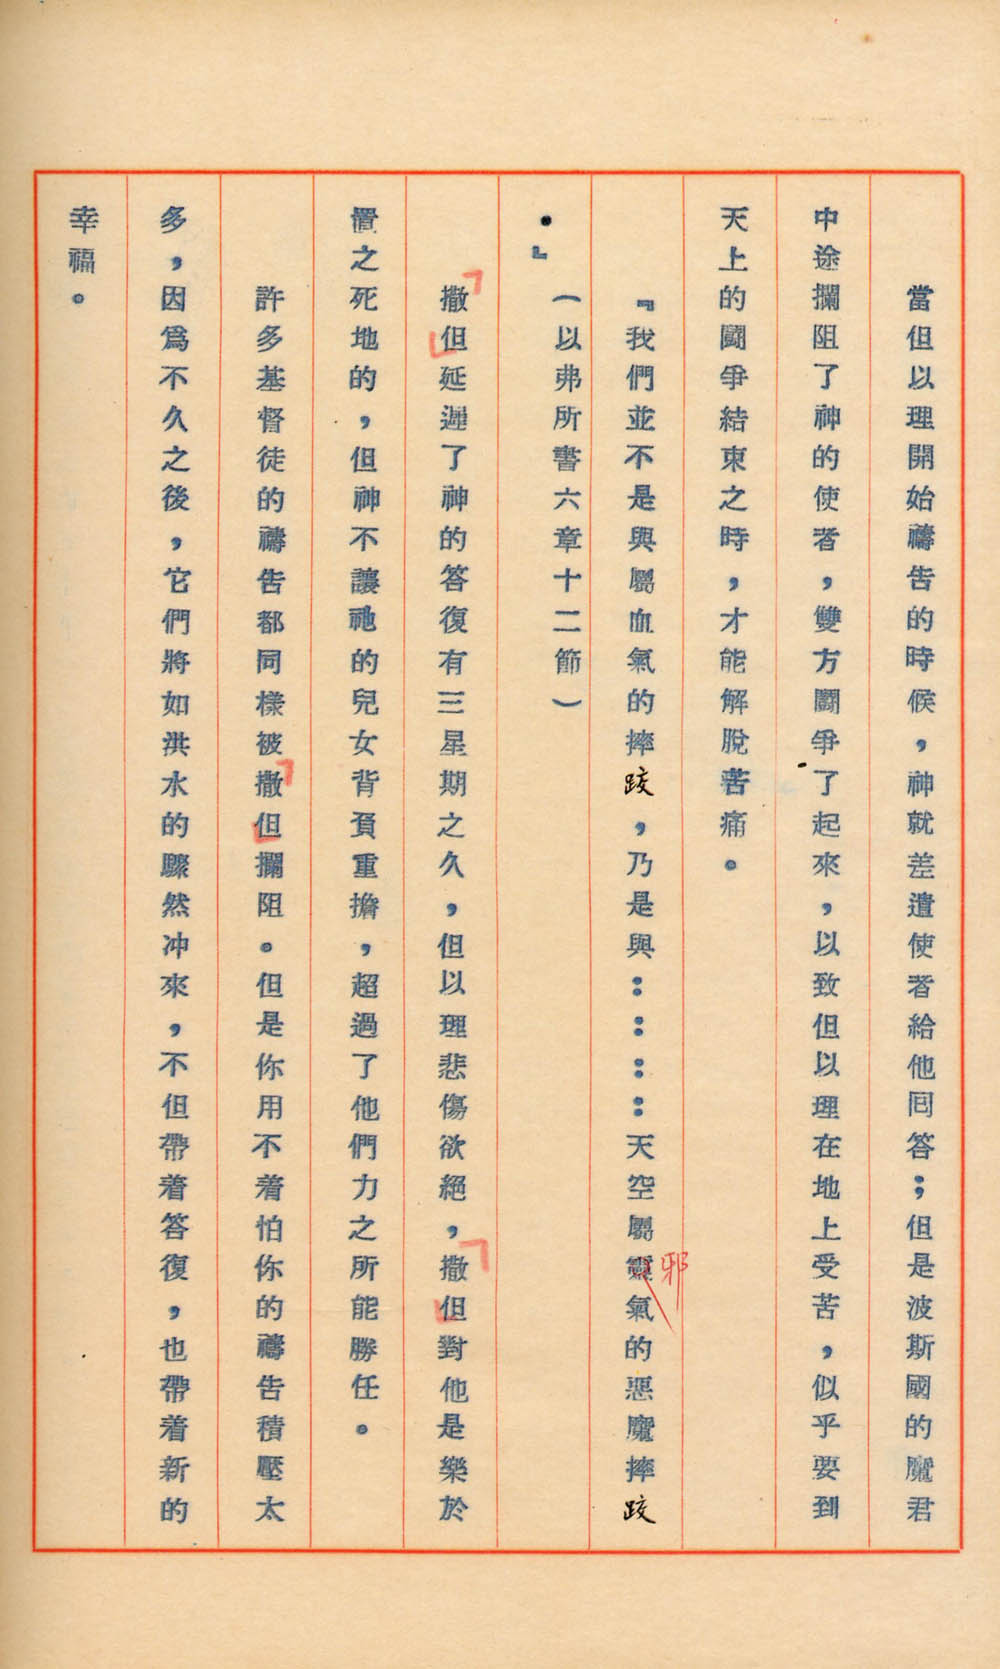 當但以理開始禱告的時候，神就差遣使者給他回答；但是波斯國的魔君
中途攔阻了神的使者，雙方鬪爭了起來，以致但以理在地上受苦，似乎要到
天上的鬪爭結束之時，才能解脫苦痛。
『我們並不是與屬血氣的摔跤，乃是與：：：：天空屬靈氣的惡魔摔跤
邪
。』（以弗所書六章十二節）
撒但延遲了神的答復有三星期之久，但以理悲傷欲絕，撒但對他是樂於
置之死地的，但神不讓祂的兒女背負重擔，超過了他們力之所能勝任。
許多基督徒的禱告都同樣被撒但攔阻。但是你用不着怕你的禱告積壓太
多，因爲不久之後，它們將如洪水的驟然冲來，不但帶着答復，也帶着新的
幸福。